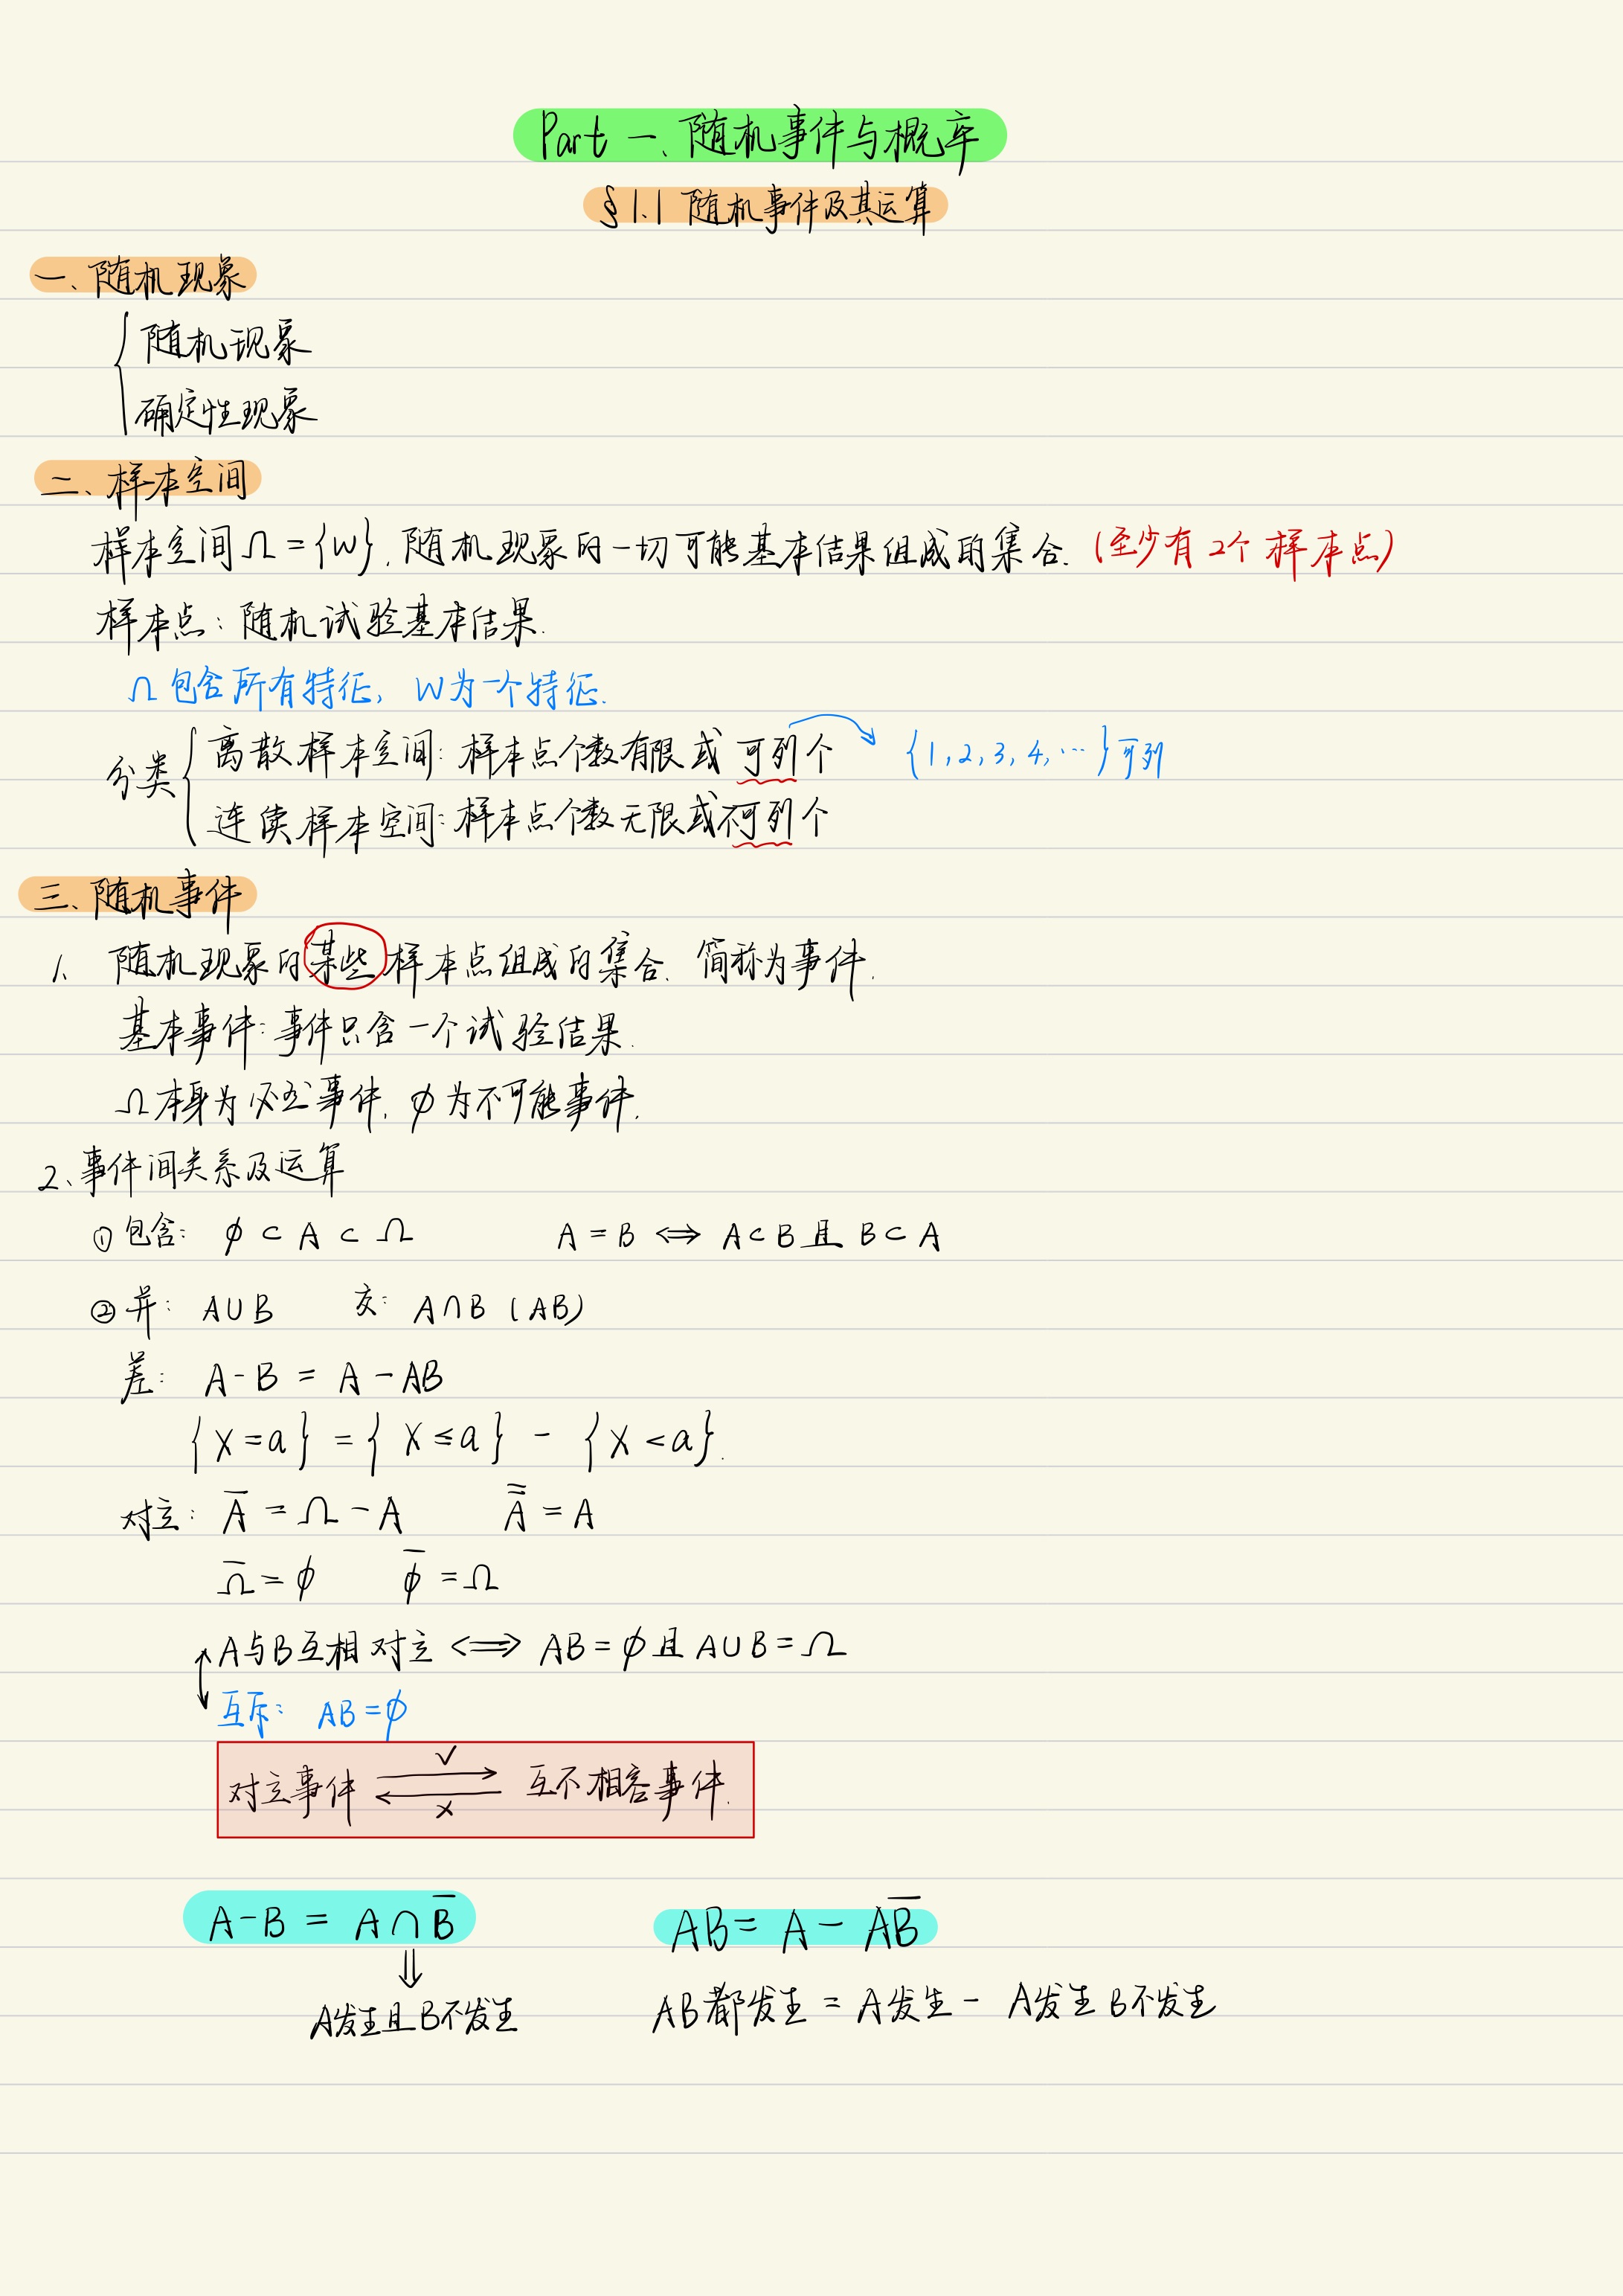 Part 一、随机事件与概率
§1.1 随机事件及其运算
一、随机现象
随机现象
确定性现象
二、样本空间
样本空间Ω={w}, 随机现象的一切可能基本结果组成的集合. (至少有2个样本点)
样本点: 随机试验基本结果.
Ω包含所有特征, w为一个特征.
分类
离散样本空间: 样本点个数有限或可列个 {1,2,3,4,…}可列
连续样本空间: 样本点个数无限或不可列个
三、随机事件
1. 随机现象的某些样本点组成的集合. 简称为事件.
基本事件: 事件只含一个试验结果.
Ω本身为必然事件, φ为不可能事件.
2、事件间关系及运算
① 包含: φ⊂A⊂Ω A=B ⟺ A⊂B且B⊂A
② 并: A∪B 交: A∩B (AB)
差: A-B = A-AB
{X=a} = {X≤a} - {X<a}.
对立: A̅ = Ω-A A̿ = A
Ω̅=φ φ̅=Ω
A与B互相对立 ⟺ AB=φ且A∪B=Ω
互斥: AB=φ
√
对立事件 ⇄ 互不相容事件.
×
A-B = A∩B̅ AB = A-AB̅
⇓
A发生且B不发生 AB都发生 = A发生 - A发生B不发生